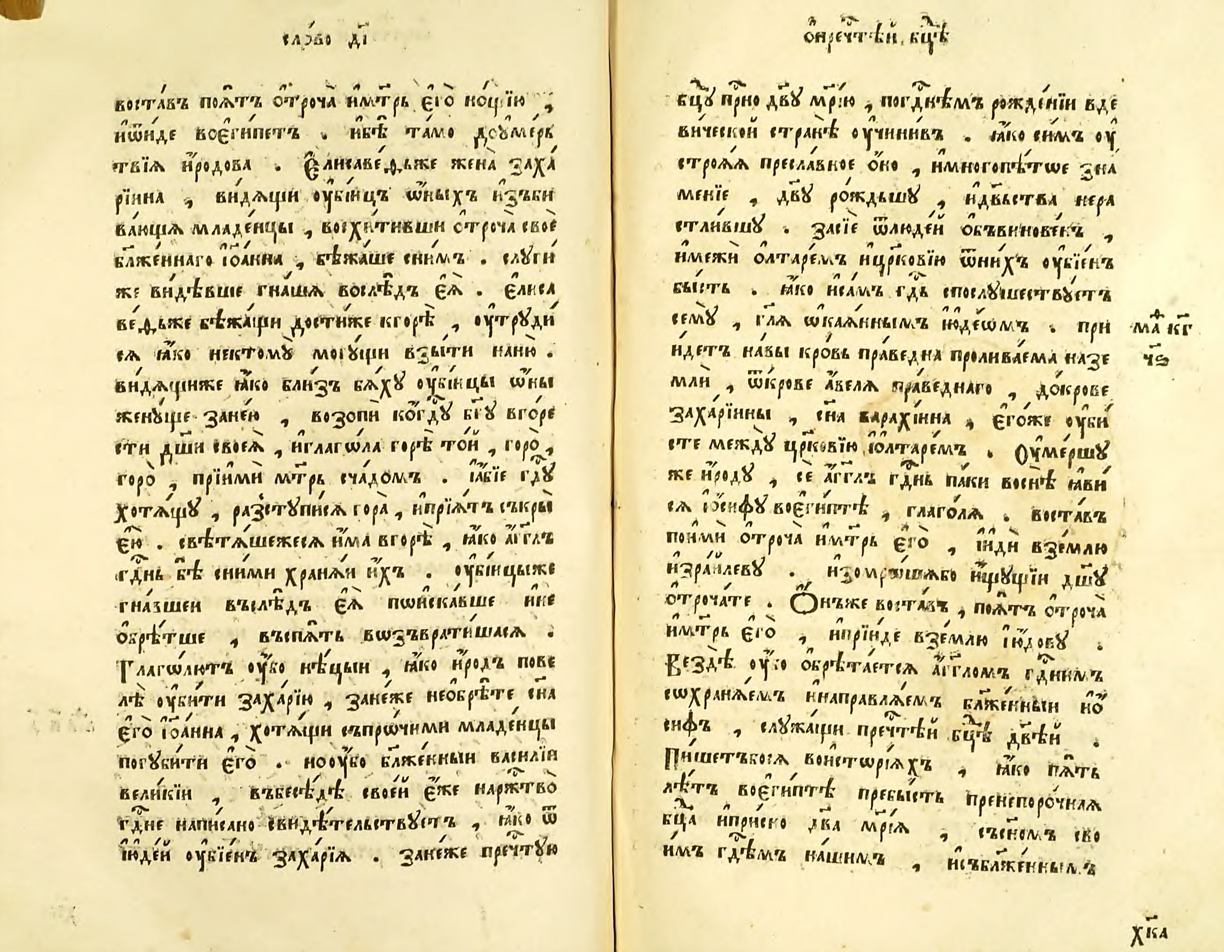 сло́во д҃і
воста́въ поѧ́тъ ѻ҆троча̀ и҆мт҃рь є҆го̀ но́щїю ,
и҆ѿи́де воєги́петъ . и҆бѣ̀ та́мо досме́рь
твїѧ и҆́родова . Є҆лисаве́ѳьже жена̀ заха́
рїина , ви́дѧщи ᲂу҆бі́ицъ ѡ҆́ныхъ и҆зъби
ва́ющїѧ младе́нцы , восхити́вши ѻ҆троча̀ своѐ
бл҃же́ннаго і҆ѡа́нна , бѣжа́ше сни́мъ . слуги́
же ви́дѣвше гна́шѧ восле́дъ є҆ѧ̀ . є҆лиса
ве́ѳьже бѣжа́щи дости́же кгорѣ̀ , ᲂу҆труди́
сѧ ꙗ҆́ко некто́мꙋ могꙋ́щи взы́ти на́ню .
ви́дѧщиже ꙗ҆́ко бли́зъ бѧ́хꙋ ᲂу҆бі́йцы ѡ҆́ны
женꙋ́ще зане́ю , возопѝ ко́гдⷭ҇ꙋ бг҃ꙋ вго́ре
сти дш҃и своеѧ̀ , и҆глаго́ла горѣ̀ то́й , горо̀ ,
горо̀ , прїимѝ мт҃рь сча́домъ . і҆а́бїе гдⷭ҇ꙋ
хотѧ́щꙋ , разстꙋпи́сѧ гора̀ , и҆прїѧ́тъ съкры́
є҆ю̀ . свѣтѧ́шежесѧ и҆́ма вгорѣ̀ , ꙗ҆́ко а҆́гг҃лъ
гдⷭ҇нь бѣ̀ сни́ми хранѧ́й и҆́хъ . ᲂу҆бі́йцыже
гна́вшеи въслѣ́дъ є҆ѧ̀ пои҆ска́вше и҆не
ѻ҆брѣ́тше , въспѧ́ть возъврати́шасѧ .
Глаго́лютъ ᲂу҆́бо нѣ́цыи , ꙗ҆́ко и҆́родъ пове
лѣ̀ ᲂу҆би́ти заха́рїю , зане́же необрѣ́те сн҃а
є҆го̀ і҆ѡа́нна , хотѧ́щи съпро́чими младе́нцы
погꙋби́ти є҆го̀ . ноᲂу҆́бо бл҃же́нныи васи́лїи
вели́кїи , въбесѣ́дѣ свое́й є҆́же нарⷤтво̀
гдⷭ҇не напи́сано свидѣ́тельствꙋетъ , ꙗ҆́ко ѿ
і҆юде́й ᲂу҆бїе́нъ заха́рїѧ . зане́же пречⷭ҇тꙋю
ѻ҆пречⷭ҇тѣ́й , бц҃ѣ
бц҃ꙋ прⷭ҇но дв҃ꙋ мр҃і́ю , погдⷭ҇нѣ́мъ рожде́нїи вде
ви́ческой странѣ̀ ᲂу҆чини́въ . ꙗ҆́ко си́мъ ᲂу҆
строѧ́ѧ пресла́вное ѻ҆́но , и҆многопѣ́тое зна́
менїе , дв҃ꙋ ро́ждьшꙋ , и҆дв҃ьства нера
стли́вшꙋ . за́сїе ѿлюде́й ѻ҆бъвинове́нъ ,
и҆межѝ ѻ҆лтаре́мъ и҆цр҃ко́вїю ѿни́хъ ᲂу҆бїе́нъ
бы́сть . ꙗ҆́ко и҆са́мъ гдⷭ҇ь спослꙋ́шествꙋетъ
семꙋ̀ , гл҃ѧ ѡ҆каѧ́ннымъ і҆юде́ѡмъ . прі
и҆́детъ на́вы кро́вь пра́ведна пролива́ема назе
млѝ , ѿкро́ве а҆́велѧ пра́веднаго , до́крове
заха́рїины , сн҃а варахі́ина , є҆го́же ᲂу҆би́
сте междꙋ̀ цр҃ко́вїю и҆ѻ҆лтаре́мъ . Оу҆ме́ршꙋ
же и҆́родꙋ , сѐ а҆́гг҃лъ гдⷭ҇нь па́ки воснѣ̀ ꙗ҆ви́
сѧ і҆ѻ́сифꙋ воєги́птѣ , глаго́лѧ . воста́въ
поимѝ ѻ҆троча̀ и҆мт҃рь є҆го̀ , и҆идѝ взе́млю
і҆зра́илевꙋ . и҆зомро́шабо и҆́щꙋщїи дш҃ꙋ
ѻ҆троча́те . Ѻ҆́нъже воста́въ , поѧ́тъ ѻ҆троча̀
и҆мт҃рь є҆го̀ , и҆прїи́де взе́млю і҆ю́довꙋ .
Вездѣ̀ ᲂу҆́бо ѻ҆брѣта́етсѧ а҆́гг҃ломъ гдⷭ҇нимъ
сохранѧ́емъ и҆направлѧ́емъ бл҃же́нныи и҆ѻ҆́
сифъ , слꙋжа́щи пречⷭ҇тѣй бц҃ѣ дв҃ѣй .
Пи́шетъбосѧ вои҆сто́рїѧхъ , ꙗ҆́ко пѧ́ть
лѣ́тъ воєги́птѣ пребы́сть пренепоро́чнаѧ
бц҃а и҆при́сно два̀ мр҃і́ѧ , съсн҃омъ сво
и́мъ гдⷭ҇ѣмъ на́шимъ , и҆събл҃же́ннымъ
маⷴ҇ кг҃
ч҃ѕ
хк҃а